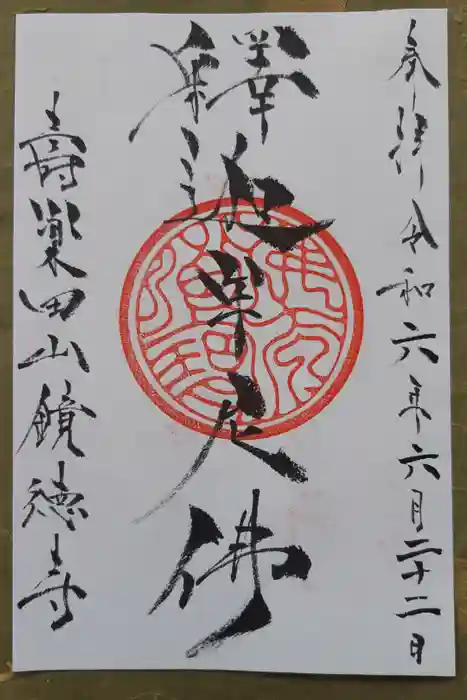 奉拝 令和六年六月二十二日
釋迦牟尼佛
壽楽田山鏡徳寺